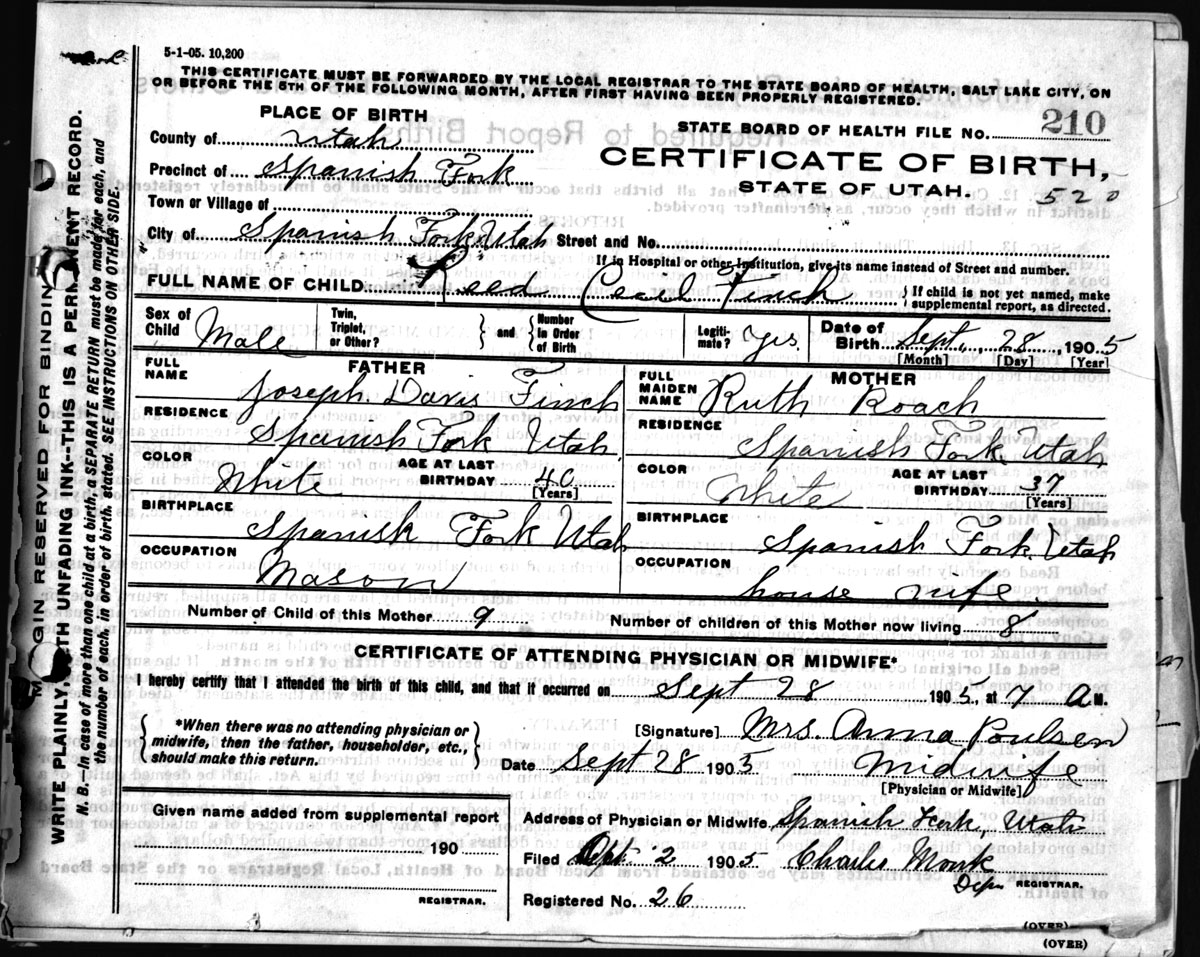 5-1-05. 10,200
THIS CERTIFICATE MUST BE FORWARDED BY THE LOCAL REGISTRAR TO THE STATE BOARD OF HEALTH, SALT LAKE CITY, ON
OR BEFORE THE 5TH OF THE FOLLOWING MONTH, AFTER FIRST HAVING BEEN PROPERLY REGISTERED.
PLACE OF BIRTH
STATE BOARD OF HEALTH FILE No. 210
County of Utah
CERTIFICATE OF BIRTH,
Precinct of Spanish Fork
STATE OF UTAH. 520
Town or Village of
City of Spanish Fork Utah Street and No.
If in Hospital or other Institution, give its name instead of Street and number.
FULL NAME OF CHILD Reed Cecil Finch
If child is not yet named, make
supplemental report, as directed.
Sex of Child Male Twin, Triplet, or Other? and Number In Order of Birth Legiti- mate? Yes Date of Birth Sept. 28, 1905
[Month] [Day] [Year]
FATHER MOTHER
FULL NAME Joseph Davis Finch FULL MAIDEN NAME Ruth Roach
RESIDENCE Spanish Fork Utah. RESIDENCE Spanish Fork Utah
COLOR White AGE AT LAST BIRTHDAY 40 [Years] COLOR White AGE AT LAST BIRTHDAY 37 [Years]
BIRTHPLACE Spanish Fork Utah BIRTHPLACE Spanish Fork Utah
OCCUPATION Mason OCCUPATION house wife.
Number of Child of this Mother 9 Number of children of this Mother now living 8
CERTIFICATE OF ATTENDING PHYSICIAN OR MIDWIFE*
I hereby certify that I attended the birth of this child, and that it occurred on Sept 28 1905, at 7 A M.
*When there was no attending physician or
midwife, then the father, householder, etc.,
should make this return.
[Signature] Mrs. Anna Poulsen
Date Sept 28 1905 Midwife
[Physician or Midwife]
Given name added from supplemental report
190
REGISTRAR.
Address of Physician or Midwife, Spanish Fork, Utah
Filed 2 1905 Charlie Monk
REGISTRAR.
Registered No. 26
(OVER)
(OVER)
WRITE PLAINLY, UNFADING INK--THIS IS A PERMANENT RECORD.
N. B.--In case of more than one child at a birth, a SEPARATE RETURN must be made for each, and
the number of each, in order of birth, stated. SEE INSTRUCTIONS ON OTHER SIDE.
RESERVED FOR BINDING